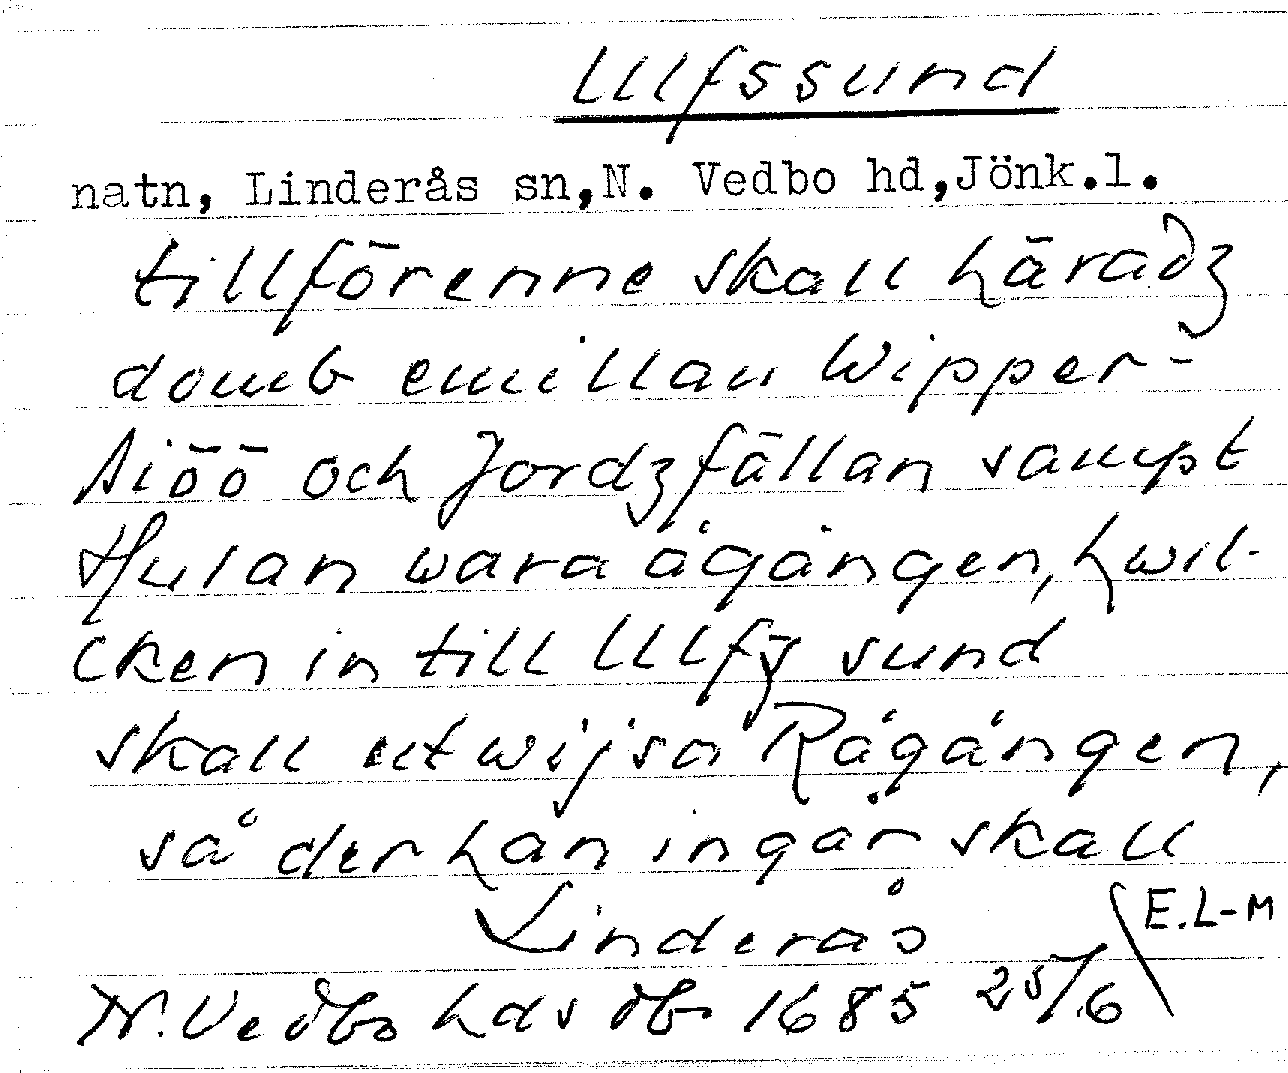 Ulfssund
natn, Linderås sn,N. Vedbo hd,Jönk.l.
tillförenne skall häradz
domb emillan Wipper-
siöö och Jordzfällan sampt
Hulan wara ågången, hwil-
cken in till Ulfz sund
skall utwijsa Rågången,
så der han ingår skall
Linderås
E.L-M
N. Vedbo hds db 1685 25/6